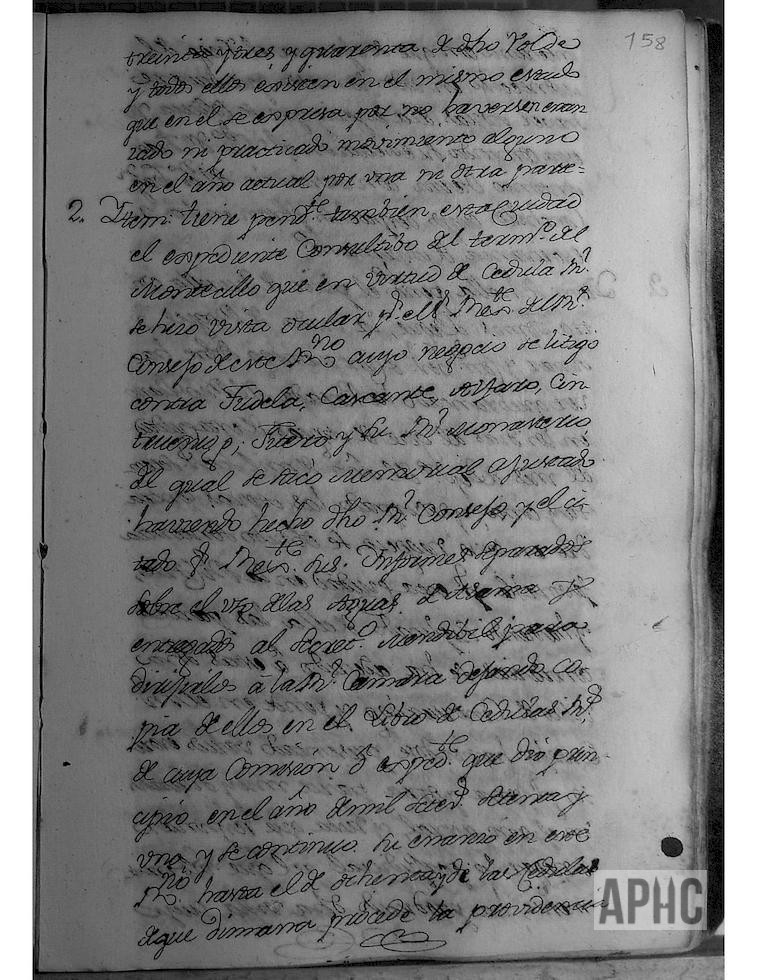 158
treinta y tres, y quarenta de dho
y todos ellos existen en el mismo estado
que en el se expresa por no haverse
ni practicado movimiento alguno
en el año actual por una ni otra parte=
2. Item tiene pend.te tambien esta Ciudad
el expediente Consultibo del term.o del
Montecillo que en virtud de Cedula R.l
se hizo vista ocular p.r el S.r del R.l
Consejo de este R.no cuyo negocio se litigó
contra Tudela, Cascante, Alfaro, Cin
truenigo, Fitero y su R.l Monasterio,
del qual se sacó Memorial ajustado
haviendo hecho dho R.l Consejo, y el ci
tado S.r sus Informes separados
sobre el uzo de las Aguas de Alhama y
entregados al Secret.o Mendibil para
dirijirlos á la R.l Camara dejando co-
pia de ellos en el Libro de Cedulas R.s
de cuya Comision ó exped.te que dió prin-
cipio en el año de mil setec.s setenta y
uno, y se continuó su en este
R.no hasta el de ochenta y de las Cedulas
de que dimana procede la providencia
APHC